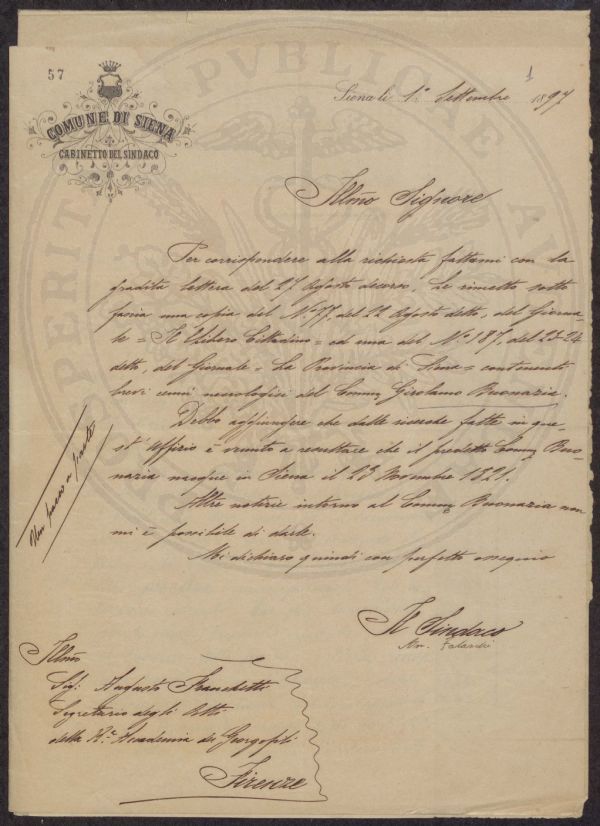 57
1
COMUNE DI SIENA
GABINETTO DEL SINDACO
Siena li 1° Settembre 1897
Illmo Signore
Per corrispondere alla richiesta fattami con la
gradita lettera del 27 Agosto decorso, Le rimetto sotto
fascia una copia del N° 77, del 22 Agosto detto, del Giorna-
le = Il Libero Cittadino = ed una del N° 187, del 23-24
detto, del Giornale = La Provincia di Siena = contenenti
brevi cenni necrologici del Comm Girolamo Buonazia.
Debbo aggiungere che dalle ricerche fatte in que-
st' Uffizio è venuto a resultare che il predetto Comm Buo-
nazia nacque in Siena il 23 Novembre 1821.
Altre notizie intorno al Comm Buonazia non
mi è possibile di darle.
Mi dichiaro quindi con perfetto ossequio
Il Sindaco
Un passo a parte
Illmo
Sig: Augusto Franchetti
Segretario degli Atti
della Ra Accademia dei Georgofili
Firenze
PVBLICAE
PROSPERITATI